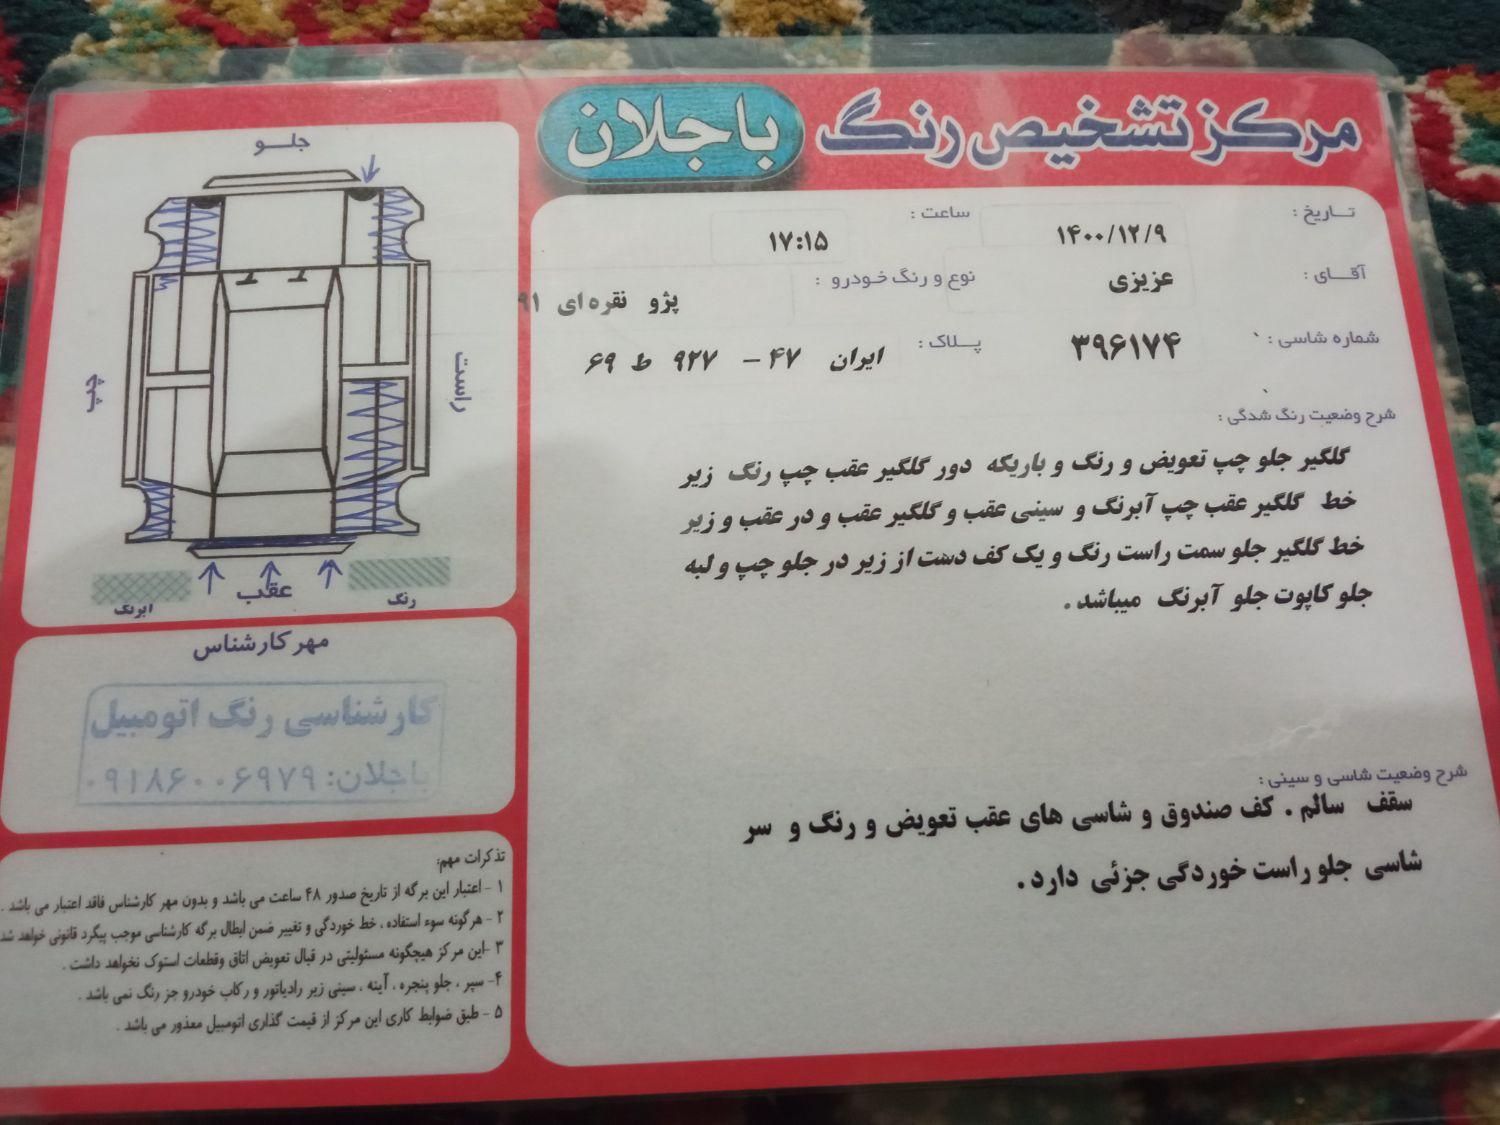 مرکز تشخیص رنگ باجلان
تاریخ : ۱۴۰۰/۱۲/۹ ساعت : ۱۷:۱۵
آقای : عزیزی نوع و رنگ خودرو : پژو نقره ای ۹۱
شماره شاسی : ۳۹۶۱۷۴ پلاک : ایران ۴۷ - ۹۲۷ ط ۶۹
شرح وضعیت رنگ شدگی :
گلگیر جلو چپ تعویض و رنگ و باریکه دور گلگیر عقب چپ رنگ زیر
خط گلگیر عقب چپ آبرنگ و سینی عقب و گلگیر عقب و در عقب و زیر
خط گلگیر جلو سمت راست رنگ و یک کف دست از زیر در جلو چپ و لبه
جلو کاپوت جلو آبرنگ میباشد .
شرح وضعیت شاسی و سینی :
سقف سالم . کف صندوق و شاسی های عقب تعویض و رنگ و سر
شاسی جلو راست خوردگی جزئی دارد .
جلو
راست
چپ
عقب
رنگ
ابرنگ
مهر کارشناس
کارشناسی رنگ اتومبیل
باجلان: ۰۹۱۸۶۰۰۶۹۷۹
تذکرات مهم:
۱ - اعتبار این برگه از تاریخ صدور ۴۸ ساعت می باشد و بدون مهر کارشناس فاقد اعتبار می باشد .
۲ - هرگونه سوء استفاده ، خط خوردگی و تغییر ضمن ابطال برگه کارشناسی موجب پیگرد قانونی خواهد شد
۳ - این مرکز هیچگونه مسئولیتی در قبال تعویض اتاق وقطعات استوک نخواهد داشت .
۴ - سپر ، جلو پنجره ، آینه ، سینی زیر رادیاتور و رکاب خودرو جز رنگ نمی باشد .
۵ - طبق ضوابط کاری این مرکز از قیمت گذاری اتومبیل معذور می باشد .